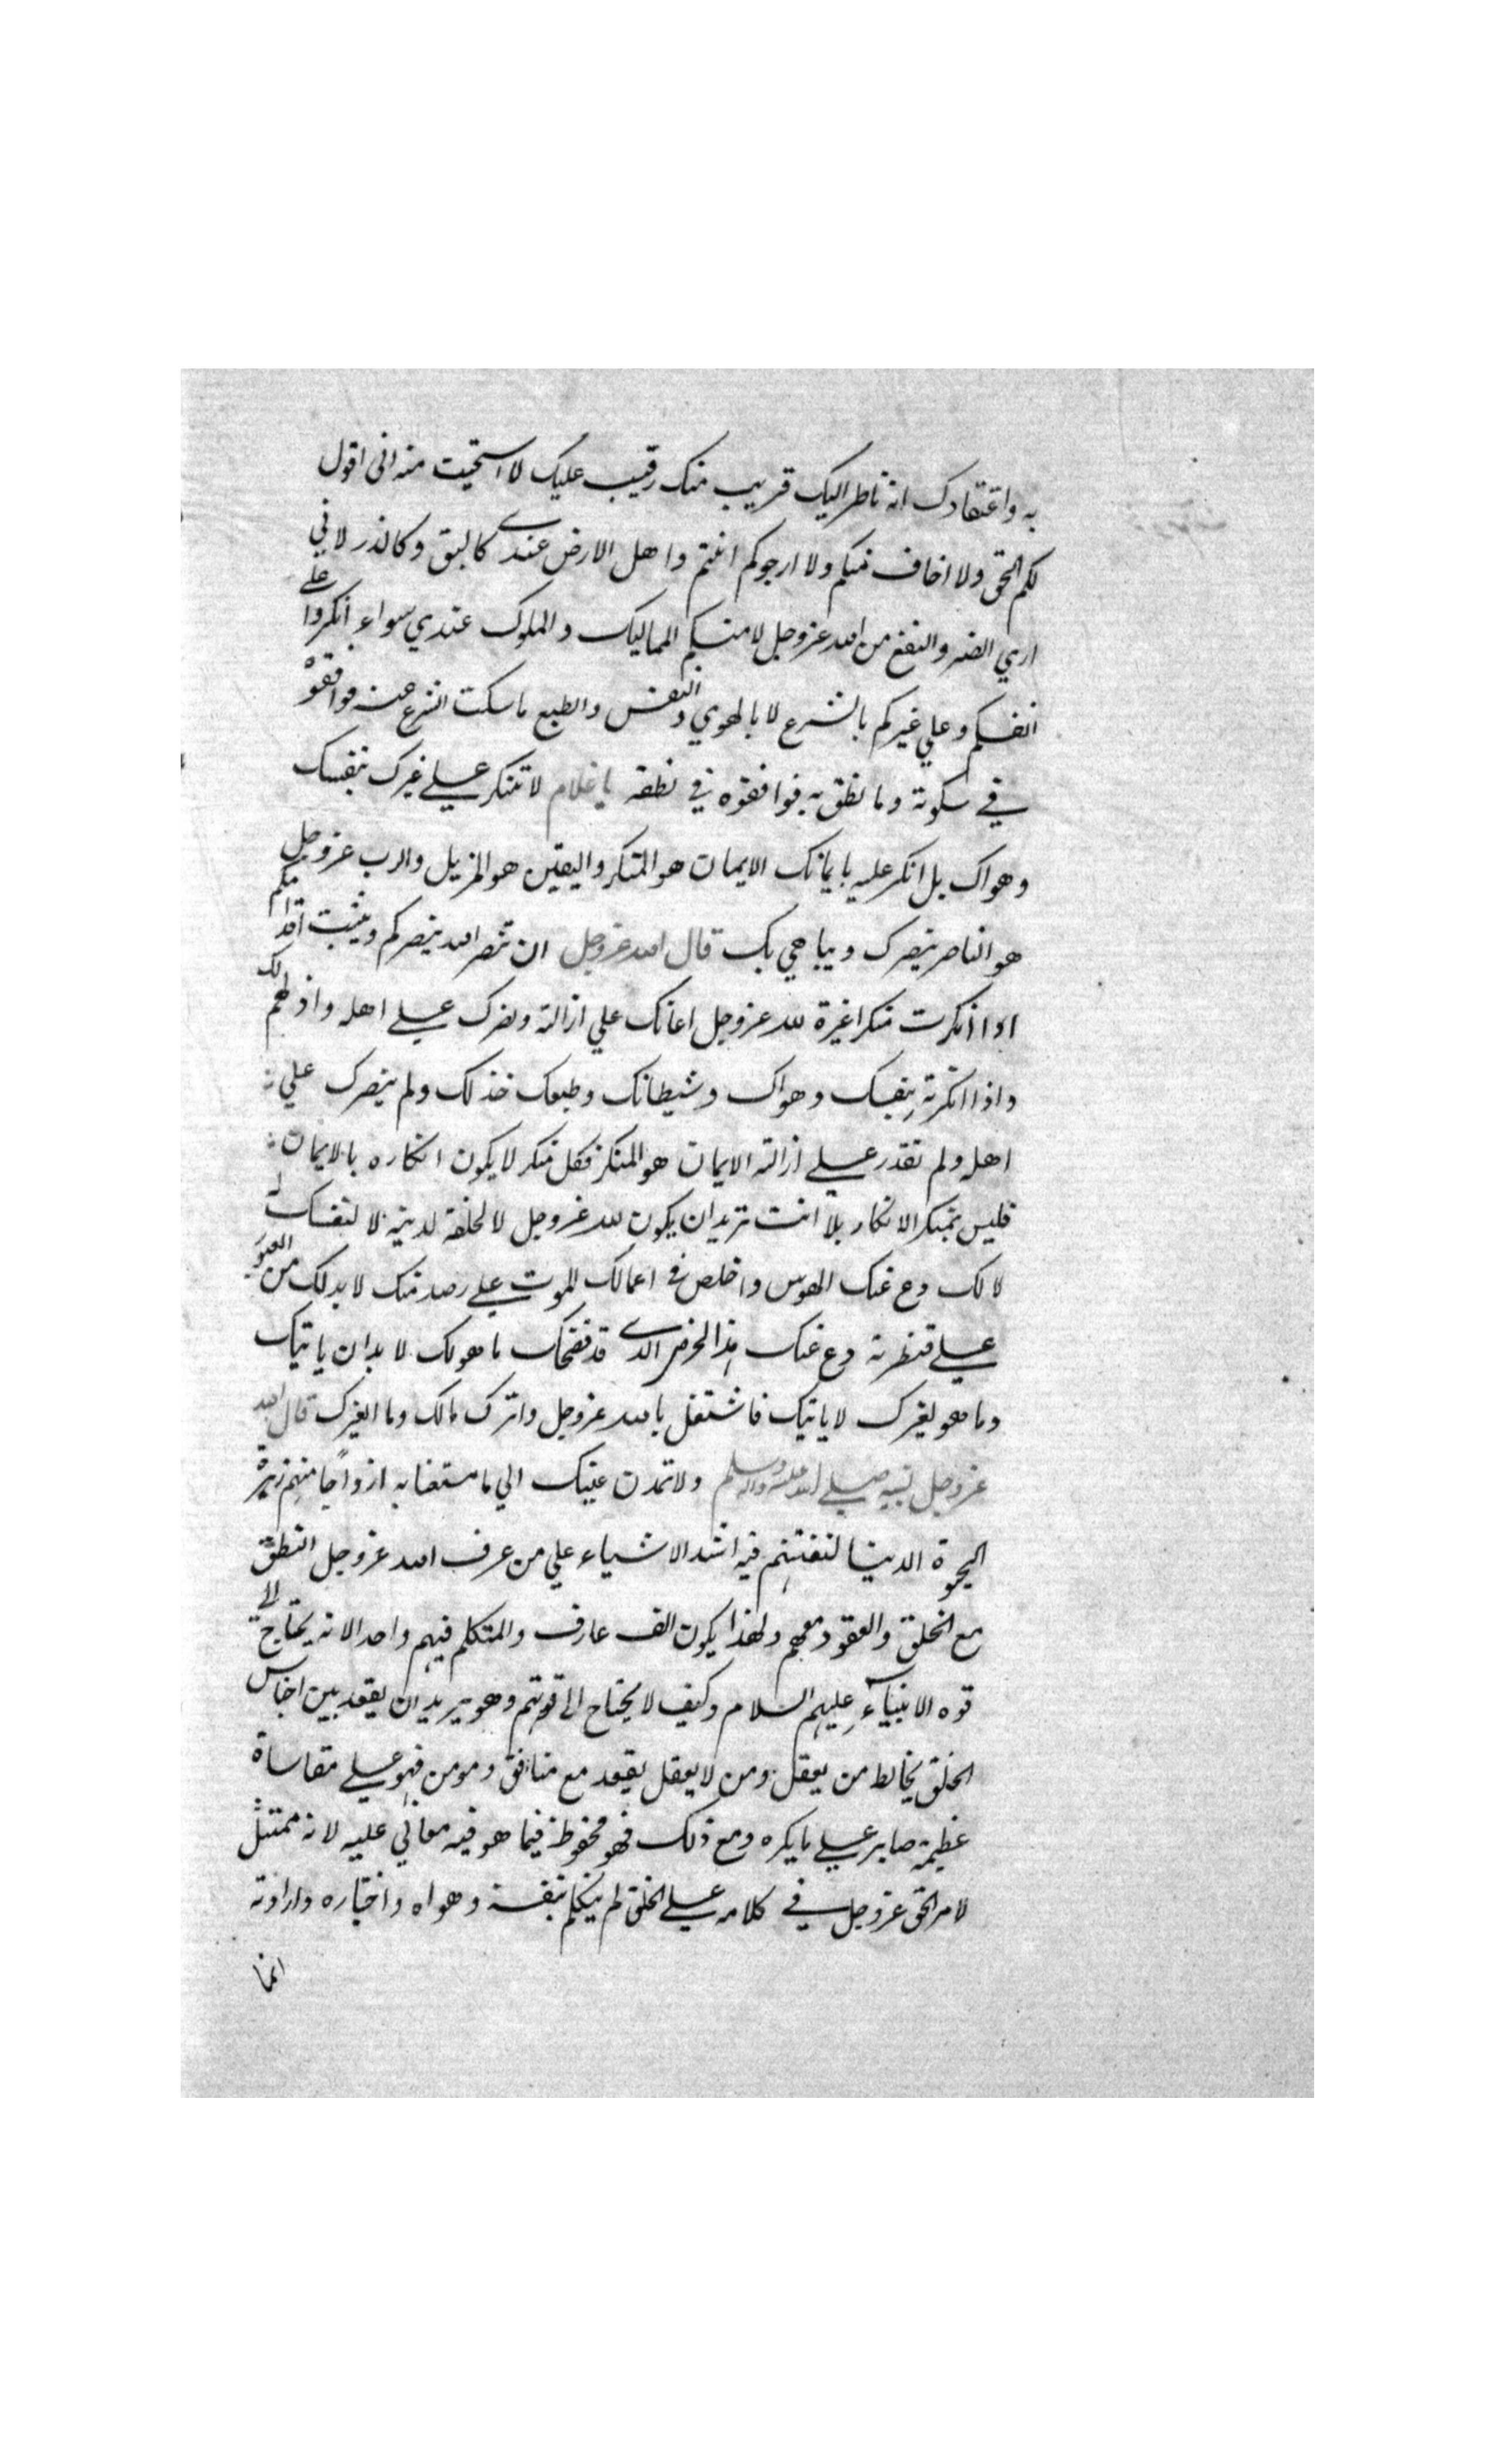 به واعتقادك انه ناظر اليك قريب منك رقيب عليك لا استحيت منه انى اقول
لكم الحق ولا اخاف منكم ولا ارجوكم انتم واهل الارض عندي كالبق وكالذر لاني
اري الضر والنفع من الله عز وجل لا منكم المماليك والملوك عندي سواء انكروا علے
انفسكم وعلي غيركم بالشرع لا بالهوي والنفس والطبع ما سكت الشرع عنه فوافقوه
في سكوته وما نطق به فوافقوه في نطقه يا غلام لا تنكر علے غيرك بنفسك
وهواك بل انكر عليه بايمانك الايمان هو المنكر واليقين هو المزيل والرب عز وجل
هو الناصر ينصرك ويباهي بك قال الله عز وجل ان تنصر الله ينصركم ويثبت اقدامكم
اذا انكرت منكرا غيرة لله عز وجل اعانك علي ازالته ونصرك علے اهله واذلهم لك
واذا انكرته بنفسك وهواك وشيطانك وطبعك خذلك ولم ينصرك علي
اهله ولم تقدر علے ازالته الايمان هو المنكر فكل منكر لا يكون انكاره بالايمان
فليس بمنكر الانكار بلا انت تريد ان يكون لله عز وجل لا لخلقه لدينه لا لنفسك له
لا لك دع عنك الهوس واخلص في اعمالك الموت علے رصد منك لا بد لك من العبور
علے قنطرته دع عنك هذا الحرص الذي قد فضحك ما هو لك لا بد ان ياتيك
وما هو لغيرك لا ياتيك فاشتغل بالله عز وجل واترك مالك وما لغيرك قال الله
عز وجل لنبيه صلے الله عليه واله وسلم ولا تمدن عينك الي ما متعنا به ازواجًا منهم زهرة
الحيوة الدنيا لنفتنهم فيه اشد الاشياء علي من عرف الله عز وجل النطق
مع الخلق والعقود معهم ولهذا يكون الف عارف والمتكلم فيهم واحد الانه يحتاج الے
قوه الانبيآء عليهم السلام وكيف لا يحتاج الى قوتهم وهو يريد ان يقعد بين اجناس
الخلق يخالط من يعقل ومن لا يعقل يقعد مع منافق ومومن فهو علے مقاساة
عظيمة صابر علے ما يكره ومع ذلك فهو محفوظ فيما هو فيه معاني عليه لانه ممتثل
لامر الحق عز وجل في كلامه علے الخلق لم يتكلم بنفسه وهواه واختياره وارادته
انما